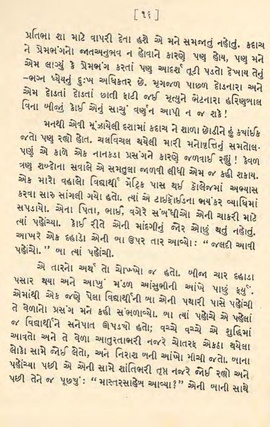 [ ૧૬ ]
પ્રતિભા શા માટે વાપરી દેના હશે એ મને સમજાતું નહોતું. કદાચ
ને પ્રેમભંગના જાતઅનુભવ ન હોવાને કારણે પણ હોય, પણ મને
એમ લાગ્યું કે પ્રેમભંગ કરતાં પણ આદર્શ તૂટી પડતો દેખાય તેનું
-ભગ્ન ધ્યેયનું દુઃખ અધિકતર છે. મૃગજળ પાછળ દોડનારાં અને
એમ દોડતાં દોડતાં છાતી ફાટી જઈ મૃત્યુને ભેટનારા હરિણબાલ
વિના બીજું કોઈ એનું સાચું વર્ણન આપી ન જ શકે!
મનથી એવી મૂંઝાયેલી દશામાં કદાચ ને શાળા છોડીને હું ક્યાંઈક
જતો પણ રહ્યો હોત. ચલવિચલ થયેલી મારી મનોવૃત્તિનું સમતોલ-
પણું એ કાળે એક નાનકડા પ્રસંગને કારણે જળવાઈ રહ્યું! કેવળ
ત્રણ શબ્દોના સવાલે એ સમતુલા જાળવી લીધી એમ જ કહી શકાય.
એક મારો વહાલો વિદ્યાર્થી મૅટ્રિક પાસ થઈ કૉલેજમાં અભ્યાસ
કરવા સારુ સાંગલી ગયો હતો. ત્યાં એ ટાઈફૉઈડના ભયંકર વ્યાધિમાં
સપડાયો. એના પિતા, ભાઈ, વગેરે સંબંધીઓ એની ચાકરી માટે
ત્યાં પહોંચ્યા. કોઈ રીતે એની માંદગીનું જોર ઓછું થતું નહોતું.
આખરે એક દહાડો એની બા ઉપર તાર આવ્યો: “ જલદી આવી
પહોંચો. ” બા ત્યાં પહોંચી.
એ તારનો અર્થ તો ચોખ્ખો જ હતો. બીજા ચાર દહાડા
પસાર થયા અને આખું મંડળ આંસુભીની આંખે પાછું ફર્યું.
એમાંથી એક જણે પેલા વિદ્યાર્થીની બા એની પથારી પાસે પહોંચી
તે વેળાનો પ્રસંગ મને કહી સંભળાવ્યો. બા ત્યાં પહોંચી એ પહેલાં
જ વિદ્યાર્થીને સનેપાત ઊપડ્યો હતો; વચ્ચે વચ્ચે એ શુદ્ધિમાં
આવતો અને તે વેળા આતુરતાભરી નજરે ચોતરફ એકઠા થયેલા
લોકો સામે જોઈ લેતો, અને નિરાશ બની આંખો મીંચી જતો. બાના
પહોંચ્યા પછી એ એની સામે શાંતિભરી તૃપ્ત નજરે જોઈ રહ્યો અને
પછી તેને જ પૂછ્યું: “ માસ્તરસાહેબ આવ્યા? ” એની બાની સાથે